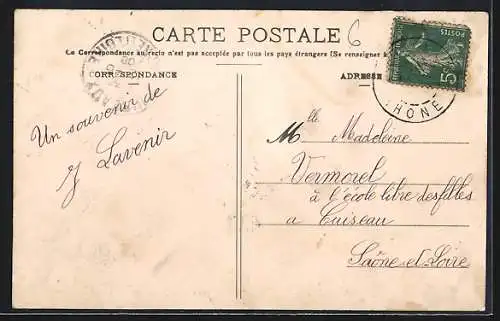 CARTE POSTALE
6
La Correspondance au recto n'est pas acceptée par tous les pays étrangers (Se renseigner
CORRESPONDANCE
ADRESSE
POSTES
5
RHÔNE
Un souvenir de
J Lavenir
Mlle Madeleine
Vermorel
à l'école libre des filles
à Cuiseau
Saône et Loire